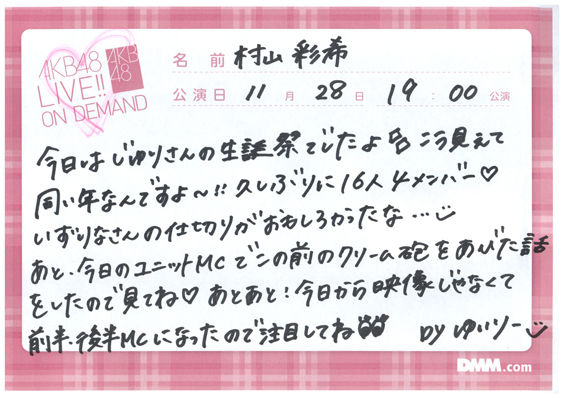 AKB48
LIVE!!
ON DEMAND
AKB
48
名 前 村山 彩希
公演日 11 月 28 日 19 : 00 公演
今日はじゅりさんの生誕祭でしたよ こう見えて
同い年なんですよ〜!! 久しぶりに16人4メンバー♡
いずりなさんの仕切りがおもしろかったな…
あと、今日のユニットMCでこの前のクリーム砲をあびた話
をしたので見てね♡ あとあと!今日から映像じゃなくて
前半、後半MCになったので注目してね
by ゆいりー
DMM.com